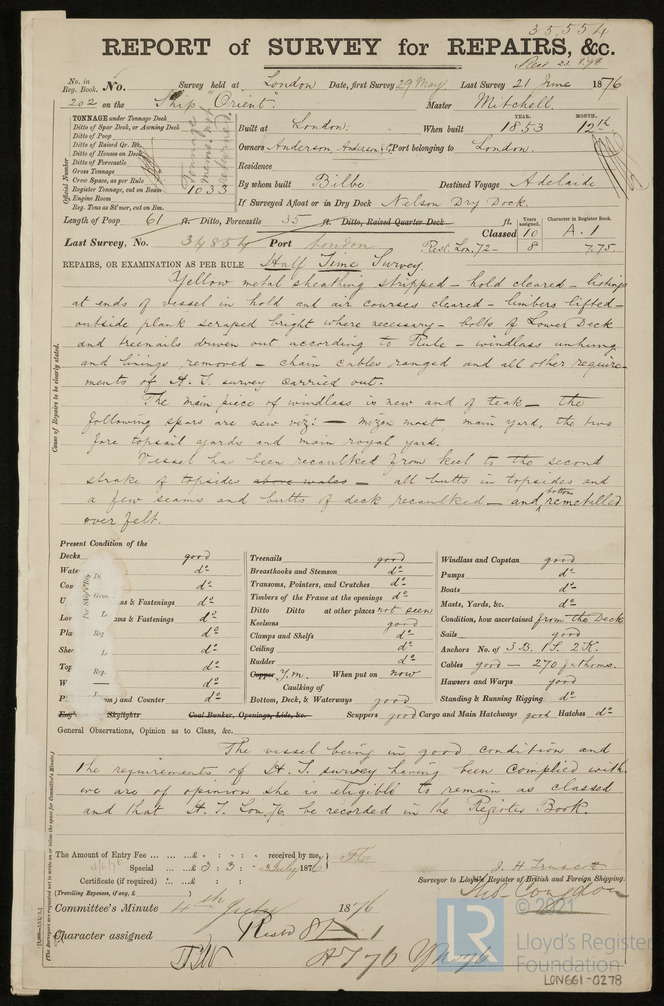 33,554
REPORT of SURVEY for REPAIRS, &c.
No. in Reg. Book. No. Survey held at London Date, first Survey 29 May Last Survey 21 June 1876
202 on the Ship "Orient" Master Mitchell
TONNAGE under Tonnage Deck
Ditto of Spar Deck, or Awning Deck
Ditto of Poop
Ditto of Raised Qr. Dk.
Ditto of Houses on Deck
Ditto of Forecastle
Gross Tonnage
Crew Space, as per Rule
Register Tonnage, cut on Beam 1033
Engine Room
Reg. Tons as St'mer, cut on Bm.
Official Number
Tonnage mems. not returned.
YEAR. MONTH.
Built at London. When built 1853 12th
Owners Anderson, Anderson & Co Port belonging to London.
Residence
By whom built Bilbe Destined Voyage Adelaide
If Surveyed Afloat or in Dry Dock Nelson Dry Dock.
Length of Poop 61 ft. Ditto, Forecastle 35 ft. Ditto, Raised Quarter Deck ft.
Years assigned. Character in Register Book.
Classed 10 A.1
Last Survey, No. 34854 Port London Rest. Lon. 72- 8 7.75
REPAIRS, OR EXAMINATION AS PER RULE Half Time Survey
Yellow metal sheathing stripped - hold cleared - listings
at ends of vessel in hold and air courses cleared - limbers lifted -
outside plank scraped bright where necessary - bolts of Lower Deck
and treenails driven out according to Rule - windlass unhung
and linings removed - chain cables ranged and all other require-
ments of H. T. survey carried out.
The main piece of windlass is new and of teak - the
following spars are new viz: - mizen mast, main yard, the two
fore topsail yards and main royal yard.
Vessel has been recaulked from keel to the second
strake of topsides above wales - all butts in topsides and
a few seams and butts of deck recaulked - and bottom remetalled
over felt.
Cause of Repairs to be clearly stated.
Present Condition of the
Decks good
do
do
ms & Fastenings do
ms & Fastenings do
do
do
do
do
and Counter do
Skylights Coal Bunker, Openings, Lids, &c.
Treenails good
Breasthooks and Stemson do
Transoms, Pointers, and Crutches do
Timbers of the Frame at the openings do
Ditto Ditto at other places not seen
Keelsons good
Clamps and Shelfs do
Ceiling do
Rudder do
Copper Y.m. When put on now
Caulking of
Bottom, Deck, & Waterways good
Scuppers good Cargo and Main Hatchways good Hatches do
Windlass and Capstan good
Pumps do
Boats do
Masts, Yards, &c. do
Condition, how ascertained from the Deck
Sails good
Anchors No. of 3 B. 1 S. 2 K.
Cables good - 270 fathoms.
Hawsers and Warps good
Standing & Running Rigging do
General Observations, Opinion as to Class, &c.
The vessel being in good condition and
the requirements of H. T. survey having been complied with
we are of opinion she is eligible to remain as classed
and that H. T. Lon. 76 be recorded in the Register Book.
The Amount of Entry Fee ... ... £ : : received by me,
Special ... ... £ 3 : 3 : - July 1876
Certificate (if required)
(Travelling Expenses, if any, £ )
Surveyor to Lloyd's Register of British and Foreign Shipping.
Committee's Minute 4th July 1876
Character assigned
© 2021
LR
Lloyd's Register
Foundation
LON661-0278